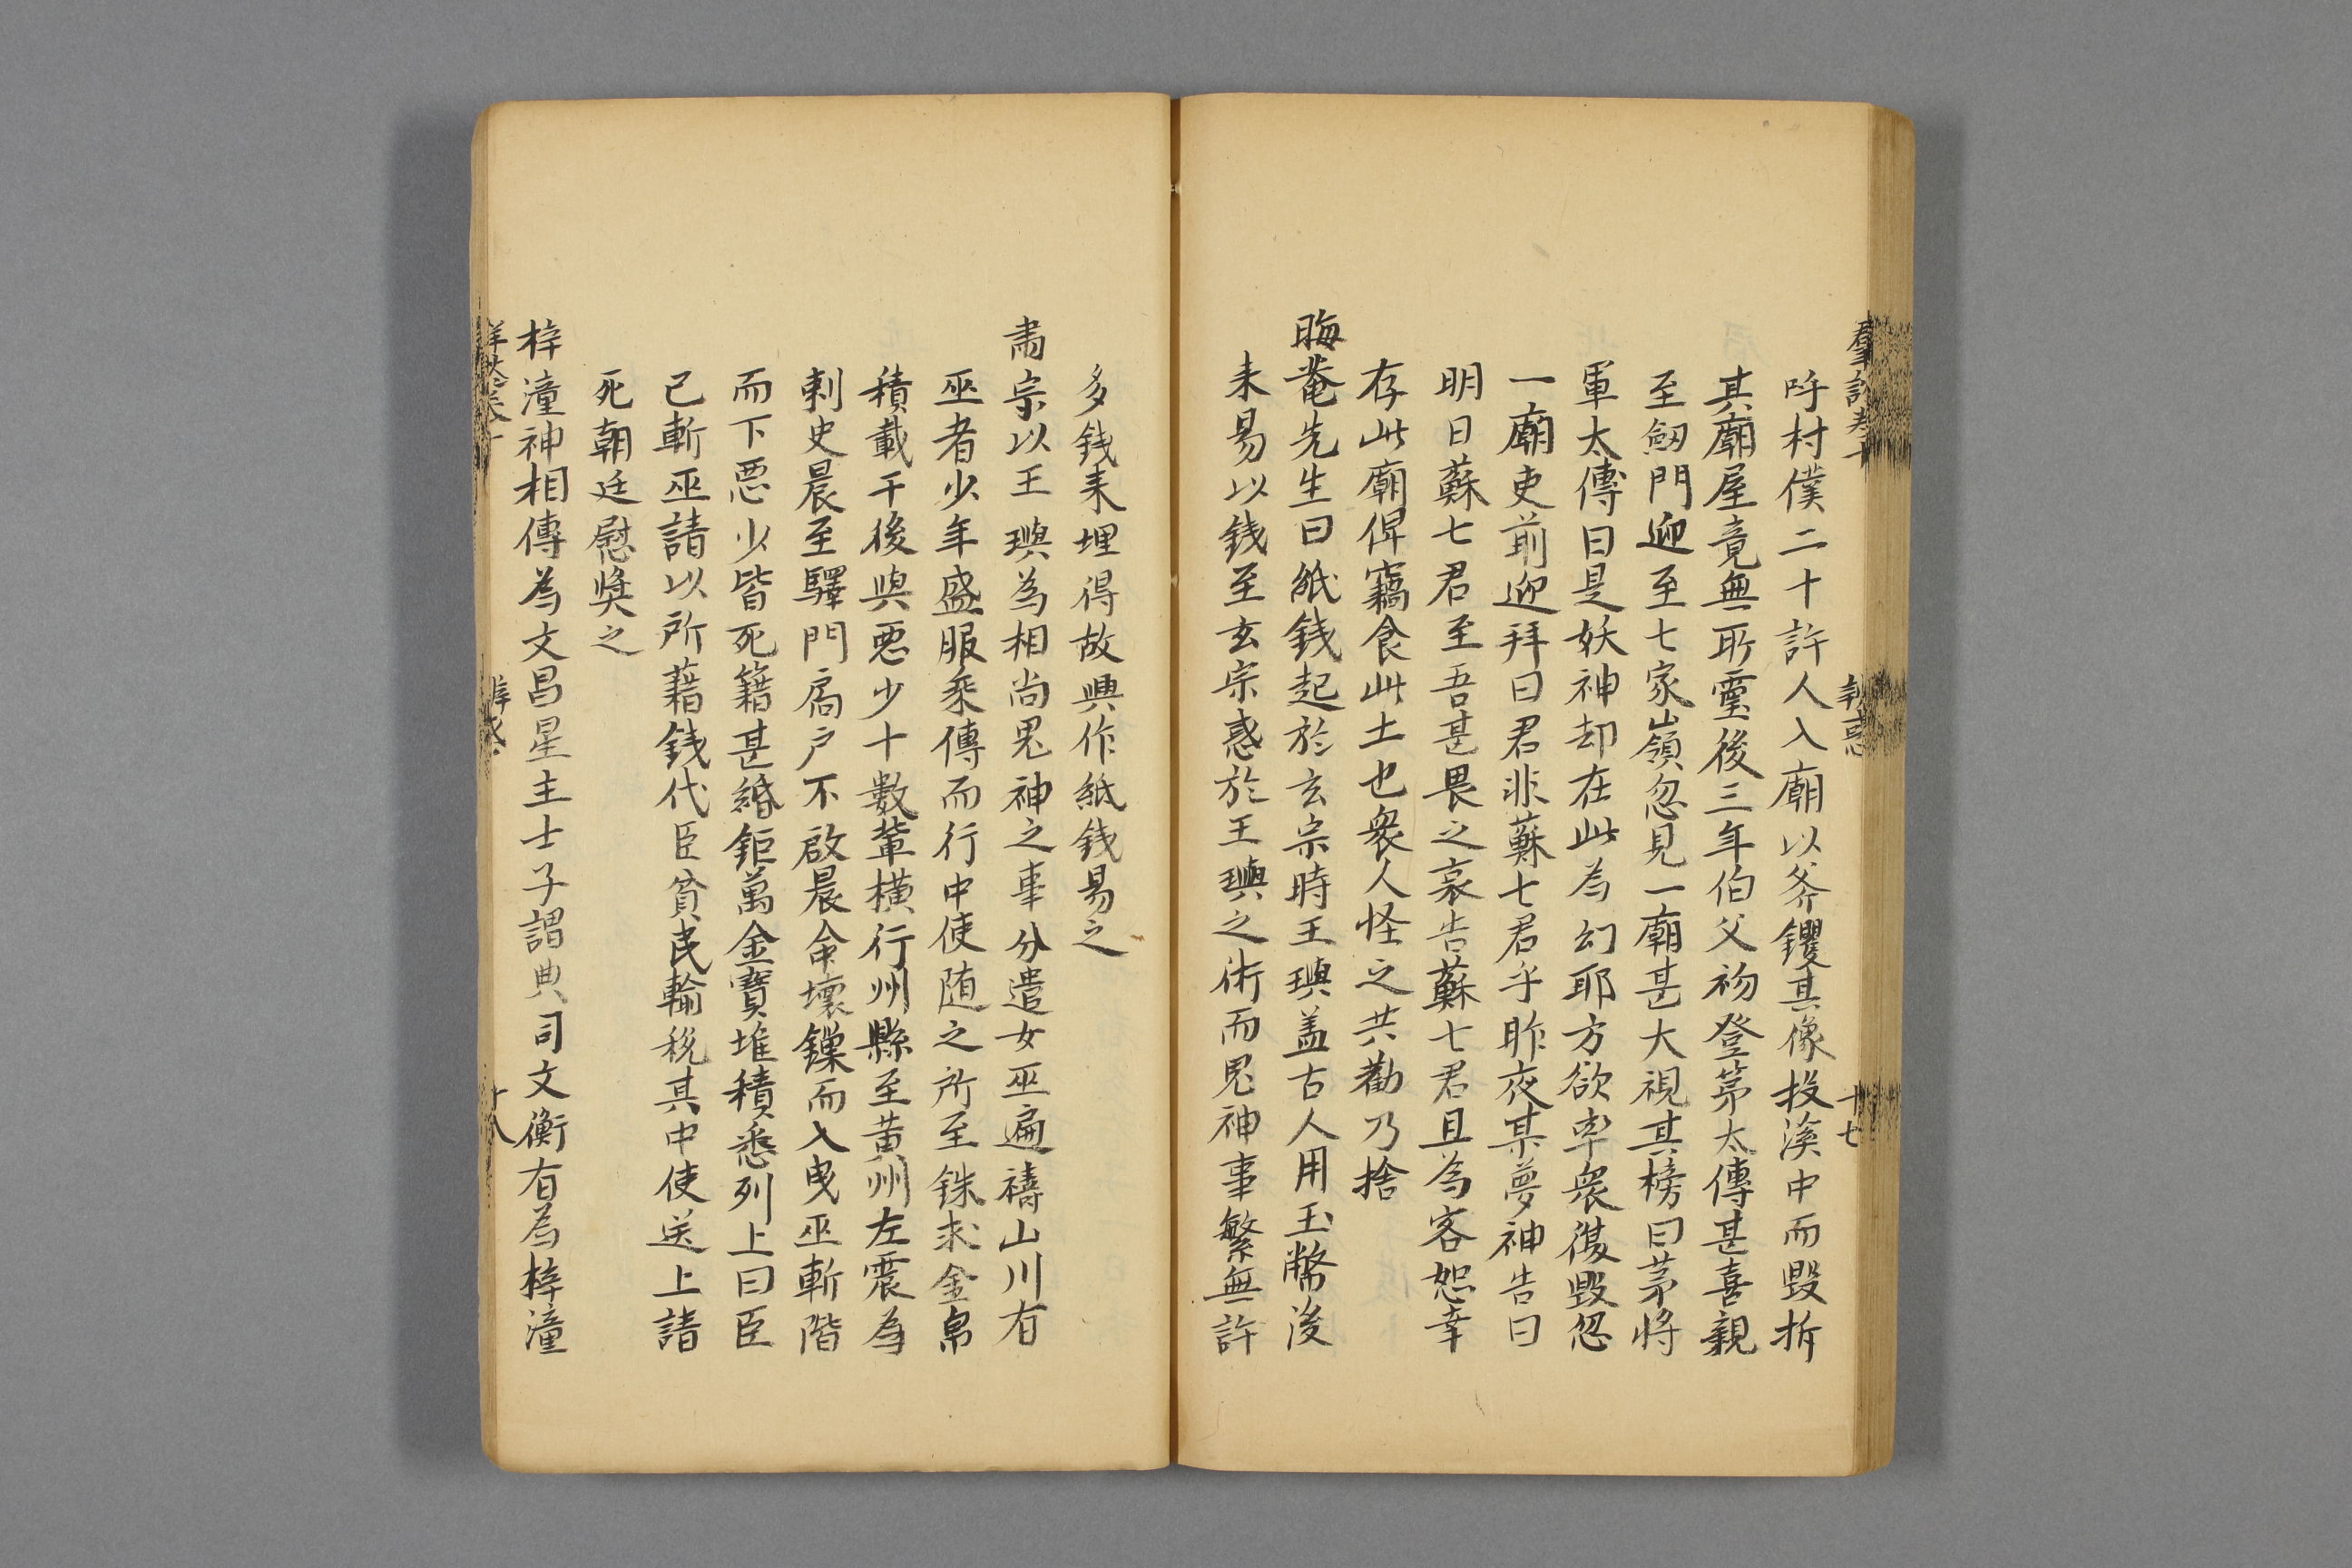 呼村僕二十許人入廟以斧钁其像投溪中而毀拆
其廟屋竟無所靈後三年伯父初登第太傅甚喜親
至劔門迎至七家嶺忽見一廟甚大視其榜曰茅將
軍太傅曰是妖神却在此為幻耶方欲率衆復毀忽
一廟吏前迎拜曰君非蘇七君乎昨夜某夢神告曰
明日蘇七君至吾甚畏之哀告蘇七君且為容恕幸
存此廟俾竊食此土也衆人怪之共勸乃捨
晦菴先生曰紙錢起於玄宗時王璵盖古人用玉幣後
来易以錢至玄宗惑於王璵之術而鬼神事繁無許
多錢来埋得故興作紙錢易之
肅宗以王璵為相尚鬼神之事分遣女巫遍禱山川有
巫者少年盛服乘傳而行中使随之所至銖求金帛
積載于後與惡少十數輩橫行州縣至黄州左震為
刺史晨至驛門扃户不啟晨命壞鏁而入曳巫斬階
而下惡少皆死籍甚緡鉅萬金寶堆積悉列上曰臣
已斬巫請以所藉錢代臣貧民輸税其中使送上請
死朝廷慰奬之
梓潼神相傳為文昌星主士子謂典司文衡有為梓潼
十八